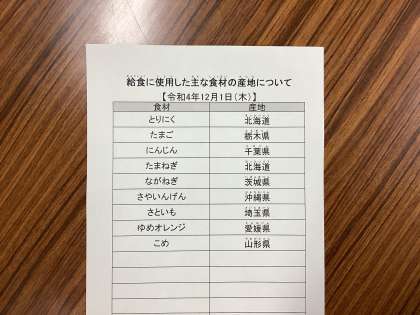 給食に使用した主な食材の産地について
【令和4年12月1日(木)】
食材 産地
とりにく 北海道
たまご 栃木県
にんじん 千葉県
たまねぎ 北海道
ながねぎ 茨城県
さやいんげん 沖縄県
さといも 埼玉県
ゆめオレンジ 愛媛県
こめ 山形県